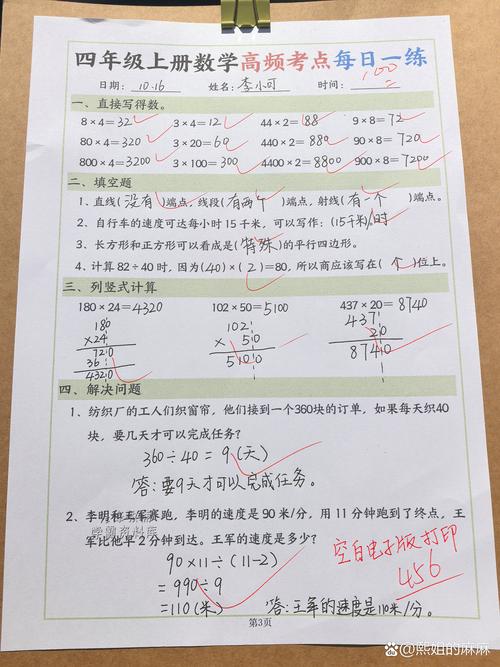 四年级上册数学高频考点每日一练
日期：10.16 姓名：李小可 时间： 100
一、直接写得数。
8×4=32 3×4=12 44×2=88 9×8=72
80×4=320 3×20=60 440×2=880 90×8=720
800×4=3200 3×100=300 4400×2=8800 900×8=7200
二、填空题
1、直线(没有)端点，线段(有两个)端点，射线(有一个)端点。
2、自行车的速度可达每小时15千米，可以写作：(15千米/时)
3、长方形和正方形可以看成是(特殊)的平行四边形。
4、计算82÷40时，因为(40)×(2)=80，所以商应该写在(个)位上。
三、列竖式计算
180×24=4320 102×50=5100 437×20=8740
180 102 437
×24 × 50 20
720 5100 8740
36
4320
四、解决问题
1、纺织厂的工人们织窗帘，他们接到一个360块的订单，如果每天织40
块，要几天才可以完成任务？
360÷40=9(天)
答：要9天才可以完成任务。
2、李明和王军赛跑，李明的速度是90米/分，用11分钟跑到了终点，王
军比他早2分钟到达。王军的速度是多少？
90×11÷(11-2)
=990÷9
=110(米)
答：王军的速度是110米/分。
空白电子版打印
456
第3页
@熙姐的麻麻